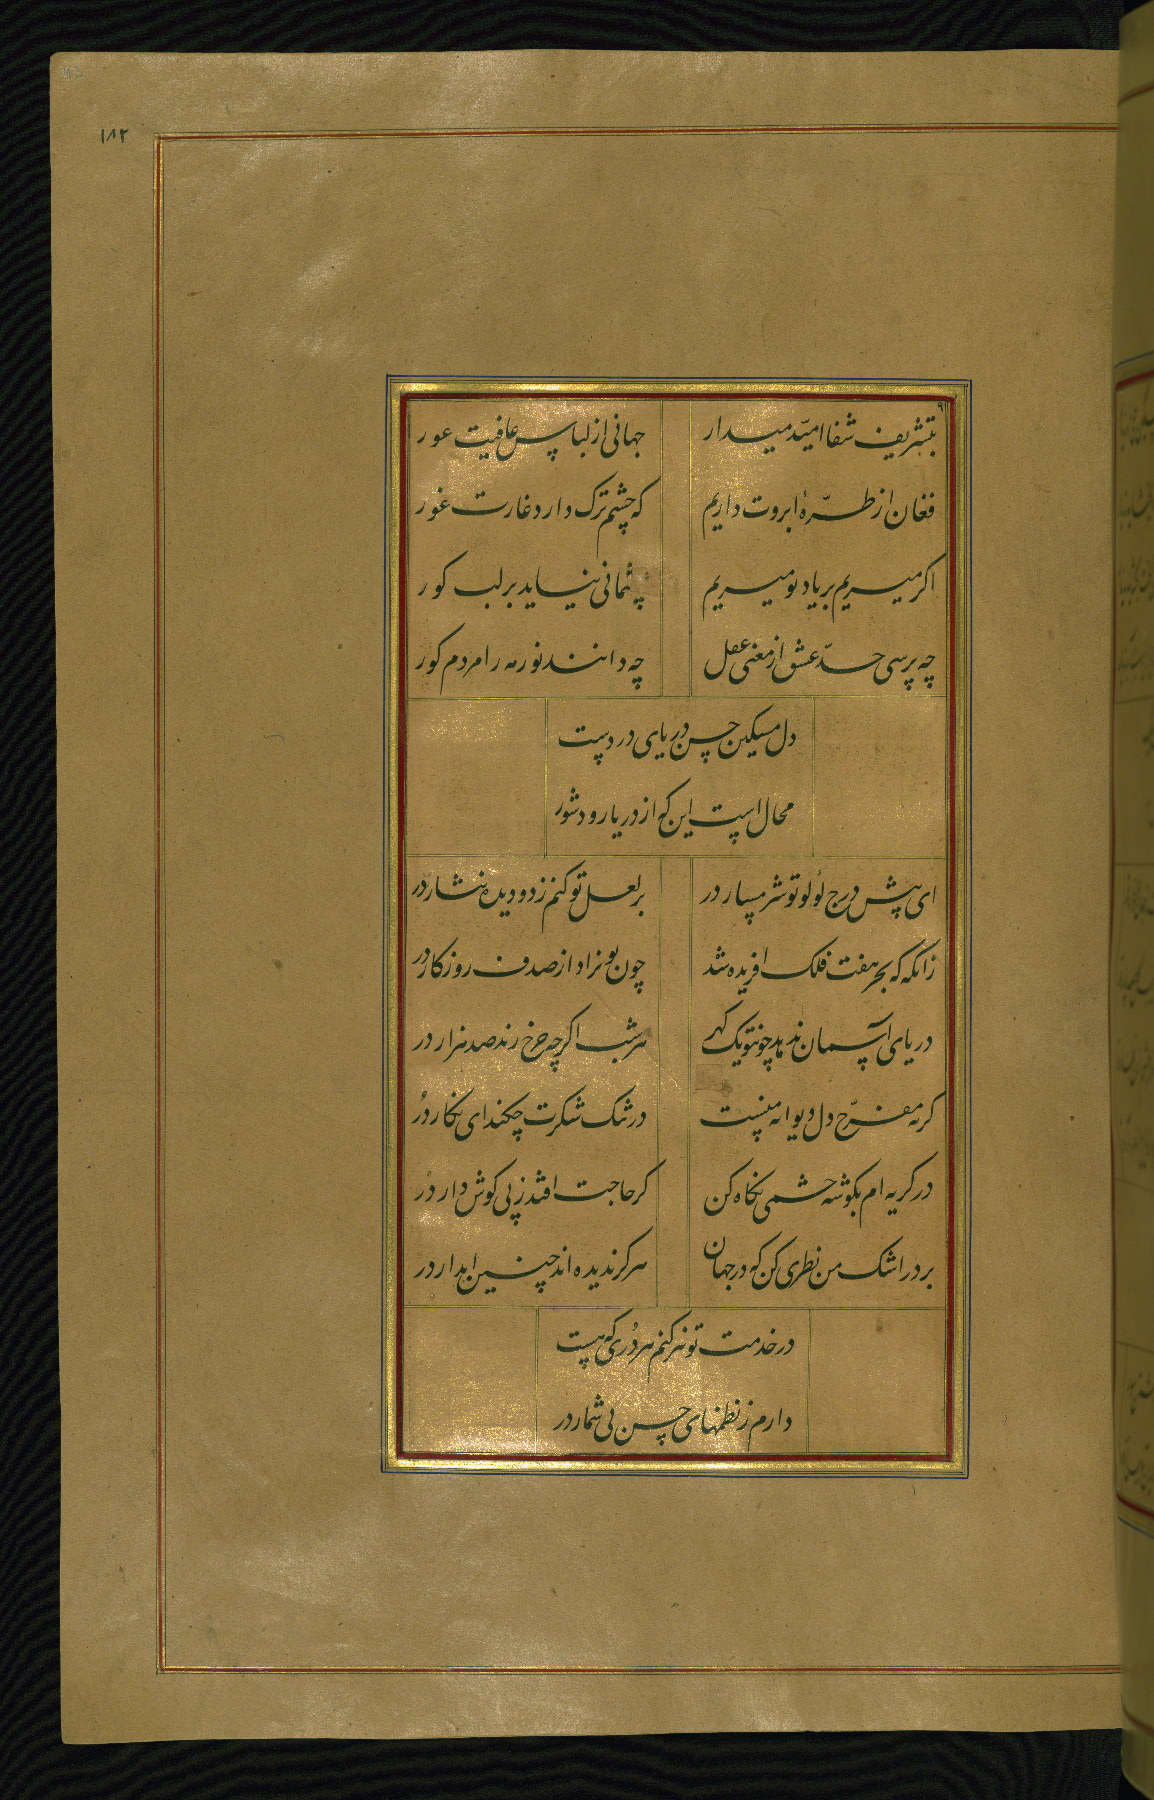 ۱۸۲
بتشریف شفا امیّد میدار جهانی از لباس عافیت عور
فغان از طرّهٔ ابروت داریم که چشم ترک دارد غارت غور
اکر میریم بر یاد تو میریم نیاید بر لب کور
چه پرسی حدّ عشق از معنی عقل چه دانند نور مه را مردم کور
دل مسکین حسن دریای دردست
محال است این که از دریا رود شور
ای پیش درج لؤلو تو شرمسار در بر لعل تو کنم ز دو دیده نثار در
زانکه که بحر هفت فلک افریده شد چون تو نزاد از صدف روزکار در
دریای آسمان ندهد چون تو یک کهر هر شب اکرچه چرخ زند صد هزار در
کر نه مفرّح دل دیوانه نیست در تنک شکرت چکند ای نکار دُر
در کریه ام بکوشه چشمی نکاه کن کر حاجت افتد ز پی کوش دار در
بر در اشک من نظری کن که در جهان هرکز ندیده اند چنین ابدار در
در خدمت تو نثر کنم هر دُری که هست
دارم ز نظمهای حسن بی شمار در